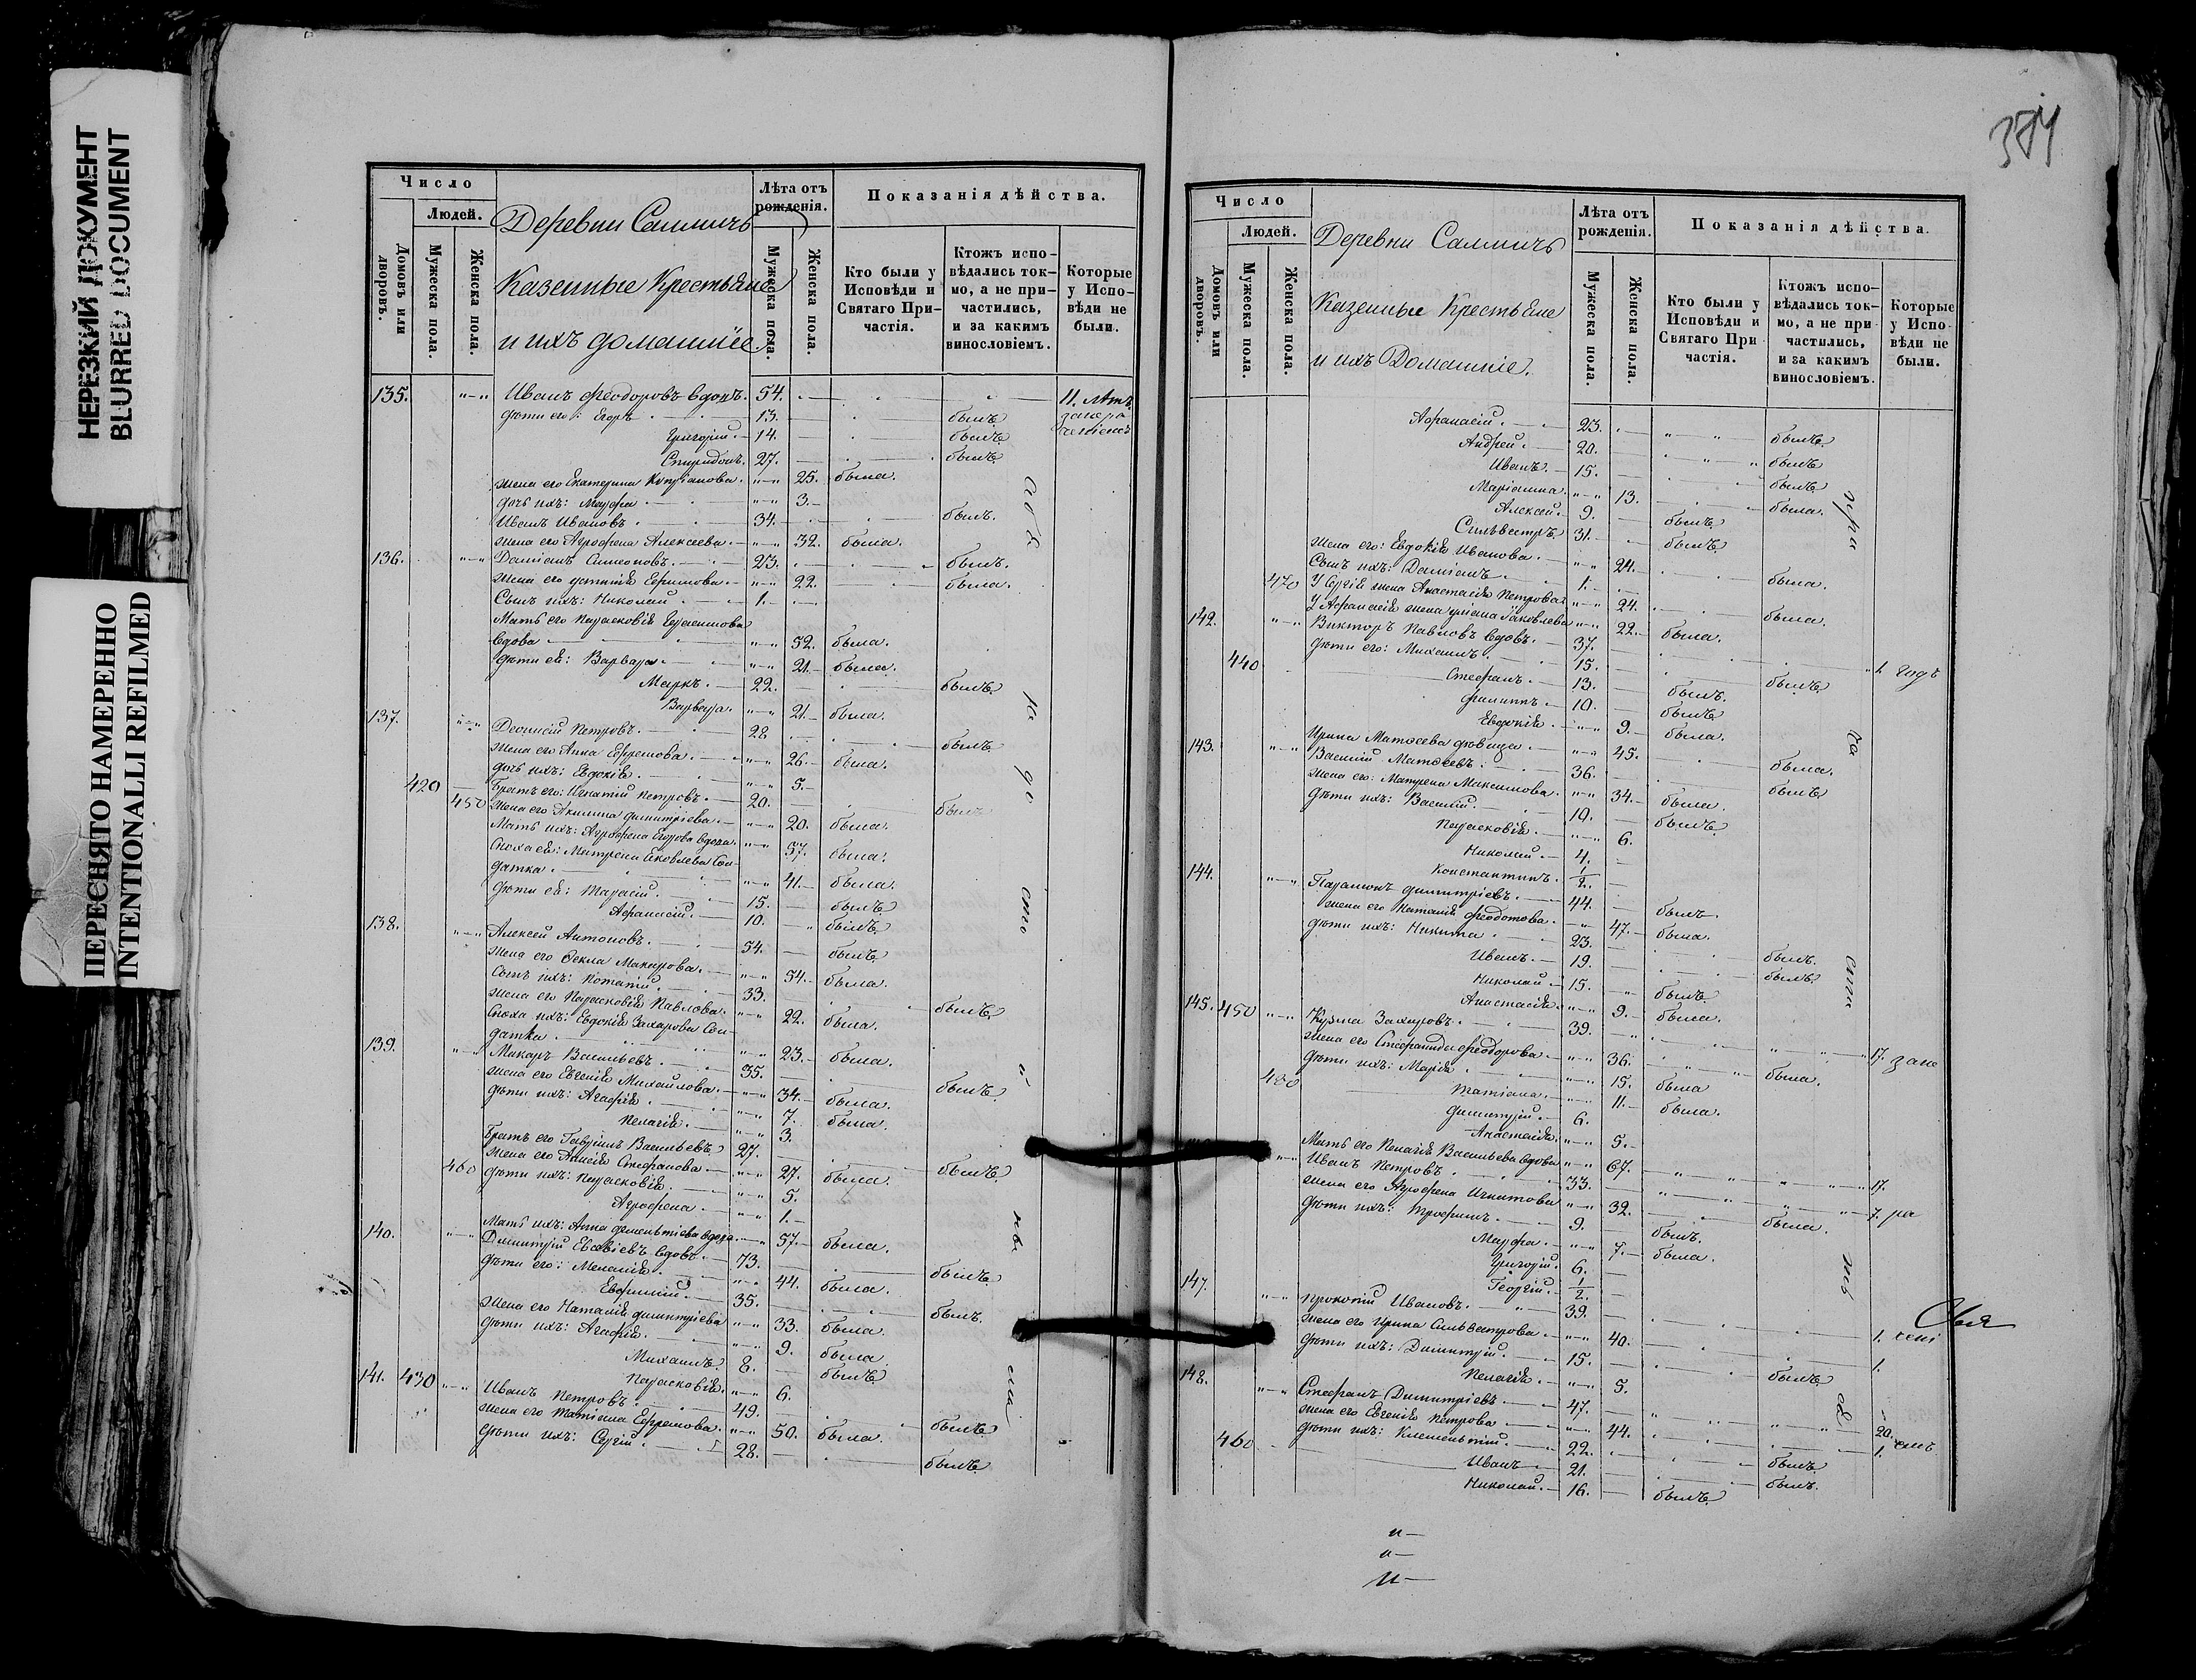 НЕРЕЗКИЙ ДОКУМЕНТ
BLURRED DOCUMENT
ПЕРЕСНЯТО НАМЕРЕННО
INTENTIONALLI REFILMED
Число
Людей.
Домовъ или дворовъ.
Мужеска пола.
Женска пола.
Деревни
Казенные Крестьяне
и ихъ домашніе.
Лѣта отъ рожденія.
Мужеска пола.
Женска пола.
Показанія дѣйства.
Кто были у Исповѣди и Святаго Причастія.
Ктожъ исповѣдались токмо, а не причастились, и за какимъ винословіемъ.
Которые у Исповѣди не были.
135. Иванъ Феодоровъ вдовъ. 54. 11. лѣтъ
дѣти его: Егоръ 13. былъ
Григорій. 14. былъ
Спиридонъ. 27. былъ
жена его Екатерина Купріанова. 25. была.
дочь ихъ: Марфа 3.
Иванъ Ивановъ 34. былъ.
жена его Агрофена Алексеева. 32. была.
136. Даміанъ Симеоновъ. 23. былъ.
жена его Ефимова. 22. была.
Сынъ ихъ: Николай 1.
Мать его Парасковія Герасимова
вдова 52. была.
дѣти ея: Варвара. 21. была.
Маркъ. 22. былъ
Варвара. 21. была.
137. Деонисій Петровъ. 28 былъ
жена его Анна Ефремова. 26. была.
дочь ихъ: Евдокія. 5.
420 Братъ его: Игнатій Петровъ. 20. былъ
450 Жена его Акилина Димитріева. 20. была.
Мать ихъ: Агрофена Егорова вдова. 57. была.
Сноха ея: Матрена Яковлева Сол-
датка. 41. была.
дѣти ея: Тарасій. 15. былъ
Афанасій. 10. былъ
138. Алексей Антоновъ. 54. былъ
Жена его Фекла Макарова. 54. была.
сынъ ихъ: Потапій. 33. былъ
жена его Парасковія Павлова. 22. была.
Сноха ихъ: Евдокія Захарова Сол-
датка 23. была.
139. Макаръ Васильевъ 35. былъ
жена его Евгенія Михайлова. 34. была.
дѣти ихъ: Агафія. 7. была.
Пелагія. 3.
Братъ его Гавріилъ Васильевъ 27. былъ
жена его Стефанова 27. была.
460 дѣти ихъ: Парасковія. 5.
Агрофена. 1.
Мать ихъ: Анна вдова. 57. была.
140. Димитрій вдовъ. 73. былъ
дѣти его: Меланія. 44. была.
Евфимій. 35. былъ.
Жена его Наталія Димитріева 33. была.
дѣти ихъ: Агафія. 9. была
Михаилъ 8. былъ
Парасковія. 6.
141. 430 Иванъ Петровъ. 49. былъ
жена его Татіана Ефремова. 50. была.
дѣти ихъ: Сергій 28. былъ
Число
Людей.
Домовъ или дворовъ.
Мужеска пола.
Женска пола.
Деревни
Казенные Крестьяне
и ихъ Домашніе.
Лѣта отъ рожденія.
Мужеска пола.
Женска пола.
Показанія дѣйства.
Кто были у Исповѣди и Святаго Причастія.
Ктожъ исповѣдались токмо, а не причастились, и за какимъ винословіемъ.
Которые у Исповѣди не были.
Афанасій. 23. былъ
Андрей. 20. былъ
Иванъ. 15. былъ
Маріанна. 13. была.
Алексей. 9. былъ
Сильвестръ. 31. былъ
жена его: Евдокія Иванова. 24. была.
Сынъ ихъ: Даміанъ. 1.
470 У Сергія жена Анастасія Петрова. 24. была.
У Афанасія жена Яковлева 22. была.
142. Викторъ Павловъ вдовъ. 37. 1 годъ
440 дѣти его: Михаилъ. 15. былъ
Стефанъ. 13. былъ.
Филиппъ. 10. былъ
Евдокія. 9. была.
143. Ирина Матѳеева дѣвица. 45. была.
Василій Матѳеевъ. 36. былъ
жена его: Матрена Максимова. 34. была.
дѣти ихъ: Василій. 10. былъ
Парасковія. 6.
Николай. 4.
Константинъ. 1/2.
144. Парамонъ Димитріевъ. 44. былъ
жена его Наталія Феодотова. 47. была.
дѣти ихъ: Никита 23. былъ.
Иванъ. 19. былъ
Николай 15. былъ
Анастасія. 9. была.
145. 450 Кузма Захаровъ. 39. 17. зане
жена его Стефанида Феодорова. 36. была.
дѣти ихъ: Марія 15. была
480 Татіана. 11. была.
Димитрій. 6.
Анастасія. 5.
Мать его Пелагія Васильева вдова 67. 17.
Иванъ Петровъ 33. 7. ра
жена его Агрофена Игнатова 32. была
дѣти ихъ: Трофимъ. 9. былъ.
Марфа. 7. была.
Григорій. 6.
Георгій. 1/2.
147. Прокопій Ивановъ. 39. 1.
жена его Ирина Сильвестрова. 40. 1.
дѣти ихъ: Димитрій. 15. былъ
Пелагія. 5.
148. Стефанъ Димитріевъ. 47. 20.
жена его Евгенія Петрова 44. 1.
460 дѣти ихъ: Климентій. 22. былъ
Иванъ 21. былъ.
Николай. 16. былъ